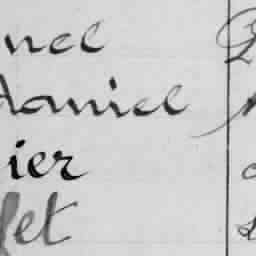 nel
daniel
ier
fet